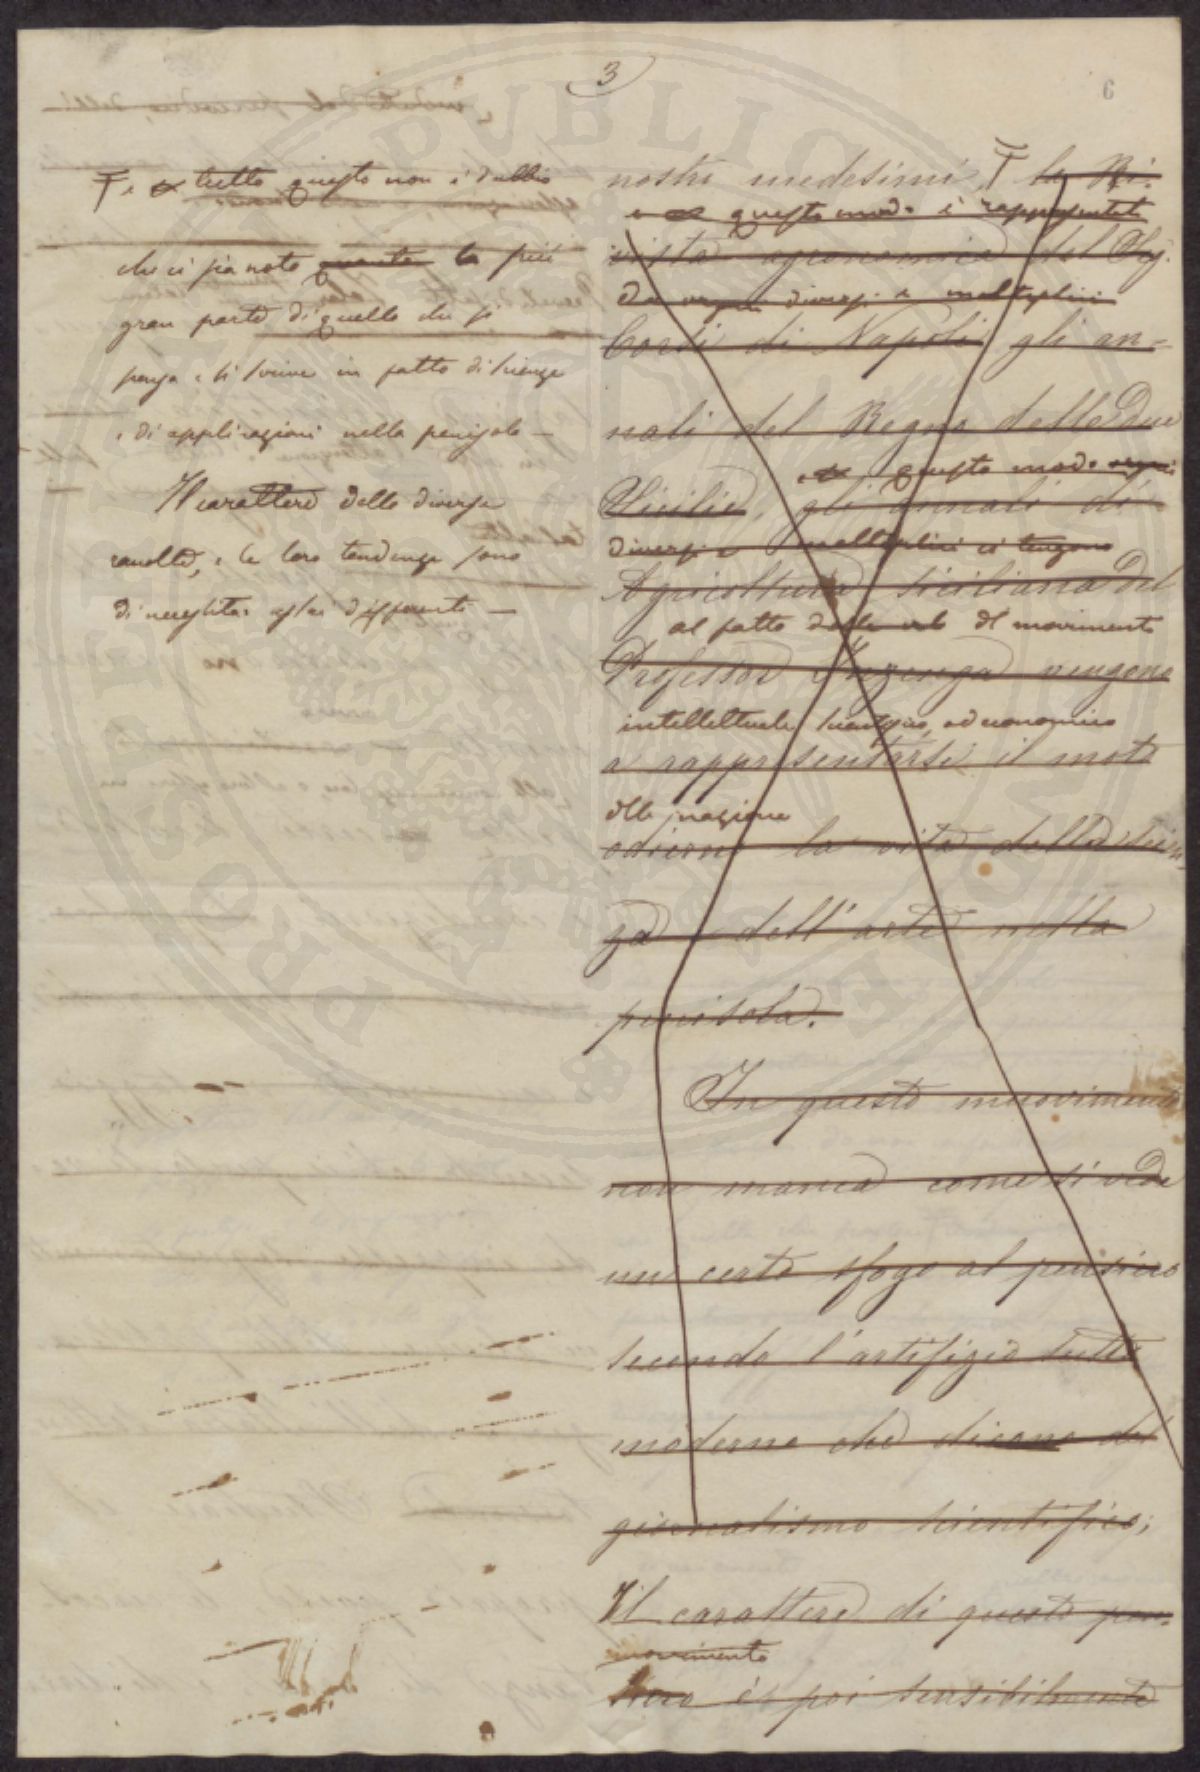 3
6
e tutto questo non è dubbio
che ci sia noto quanto la più
gran parte di quello che si
pensa e si scrive in fatto di scienze
e di applicazioni nella penisola —
Il carattere delle diverse
raccolte, e le loro tendenze sono
di necessità assai differenti —
nostri medesimi, la Ri-
e questo modo è rappresentato
vista agronomica del Sig.
da organi diversi e molteplici
Corsi di Napoli gli an-
nali del Regno delle Due
questo modo organi
Sicilie, gli annali di
diversi e molteplici ci tengono
Agricoltura Siciliana del
al fatto del movimento
Professor Inzenga vengono
intellettuale scientifico, ed economico
a rappresentarsi il moto
della nazione
odierno la vita della scien-
za e dell'arte nella
penisola.
In questo muovimento
non manca come si vede
un certo sfogo al pensiero
secondo l'artifizio tutto
moderno che dicono del
giornalismo scientifico;
Il carattere di questo pen-
movimento
siero è poi sensibilmente